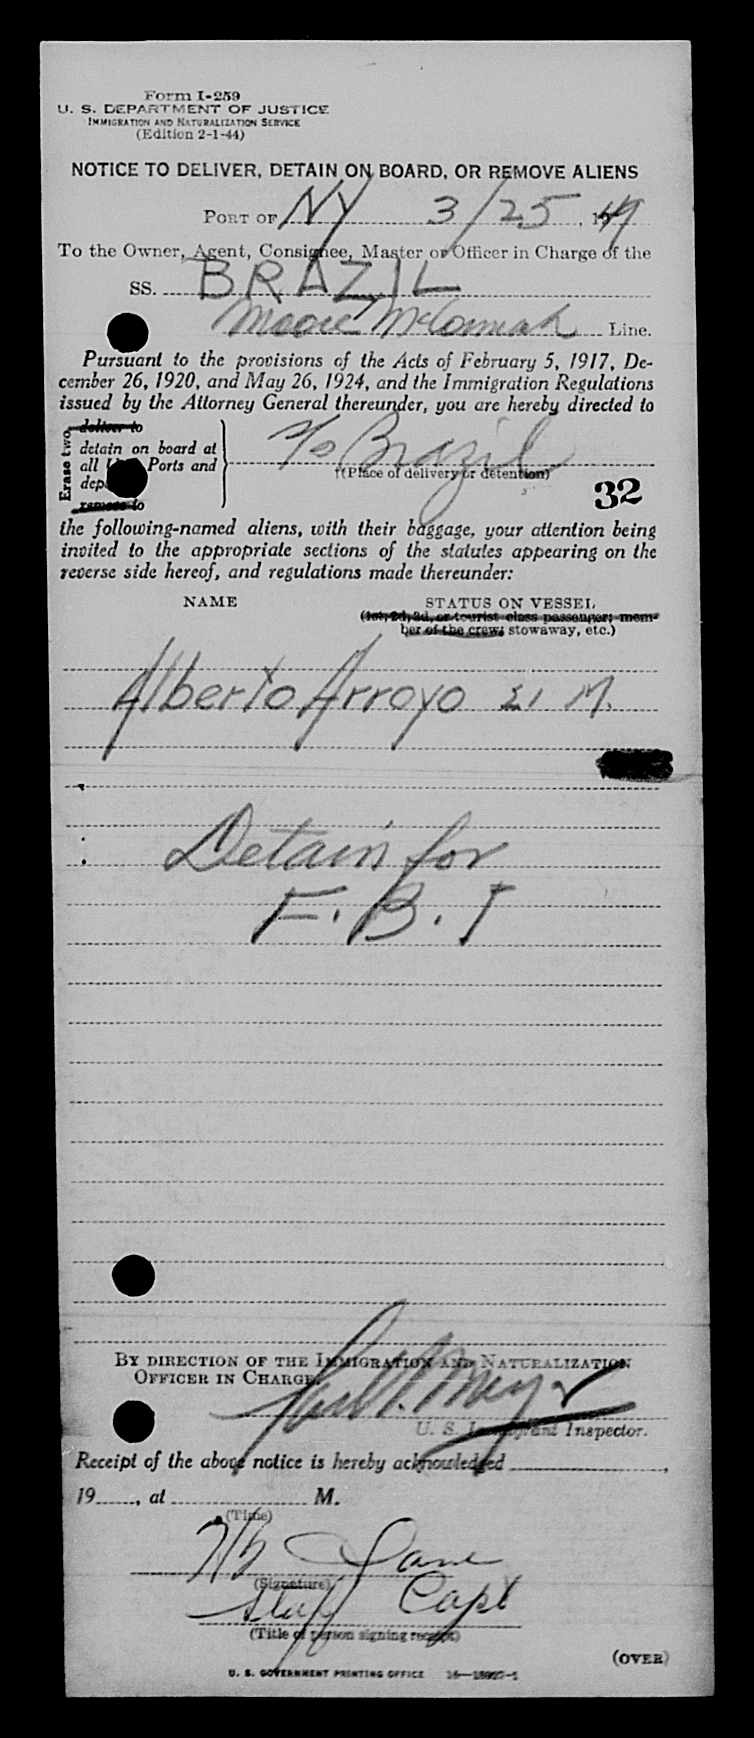 Form I-259
U. S. DEPARTMENT OF JUSTICE
IMMIGRATION AND NATURALIZATION SERVICE
(Edition 2-1-44)
NOTICE TO DELIVER, DETAIN ON BOARD, OR REMOVE ALIENS
PORT OF NY 3/25, 1949
To the Owner, Agent, Consignee, Master or Officer in Charge of the
SS. BRAZIL
Moore McCormack Line.
Pursuant to the provisions of the Acts of February 5, 1917, De-
cember 26, 1920, and May 26, 1924, and the Immigration Regulations
issued by the Attorney General thereunder, you are hereby directed to
Erase two
deliver to
detain on board at
all Ports and
remove to
S/S Brazil
(Place of delivery or detention)
32
the following-named aliens, with their baggage, your attention being
invited to the appropriate sections of the statutes appearing on the
reverse side hereof, and regulations made thereunder:
NAME STATUS ON VESSEL
(1st, 2d, 3d, or tourist class passenger; mem-
ber of the crew; stowaway, etc.)
Alberto Arroyo 21 M.
Detain for
F. B. I
BY DIRECTION OF THE IMMIGRATION AND NATURALIZATION
OFFICER IN CHARGE.
Meyer
U. S. Immigrant Inspector.
Receipt of the above notice is hereby acknowledged ,
19 , at M.
(Time)
(Signature)
Staff Capt
(Title of person signing receipt)
(OVER)
U. S. GOVERNMENT PRINTING OFFICE